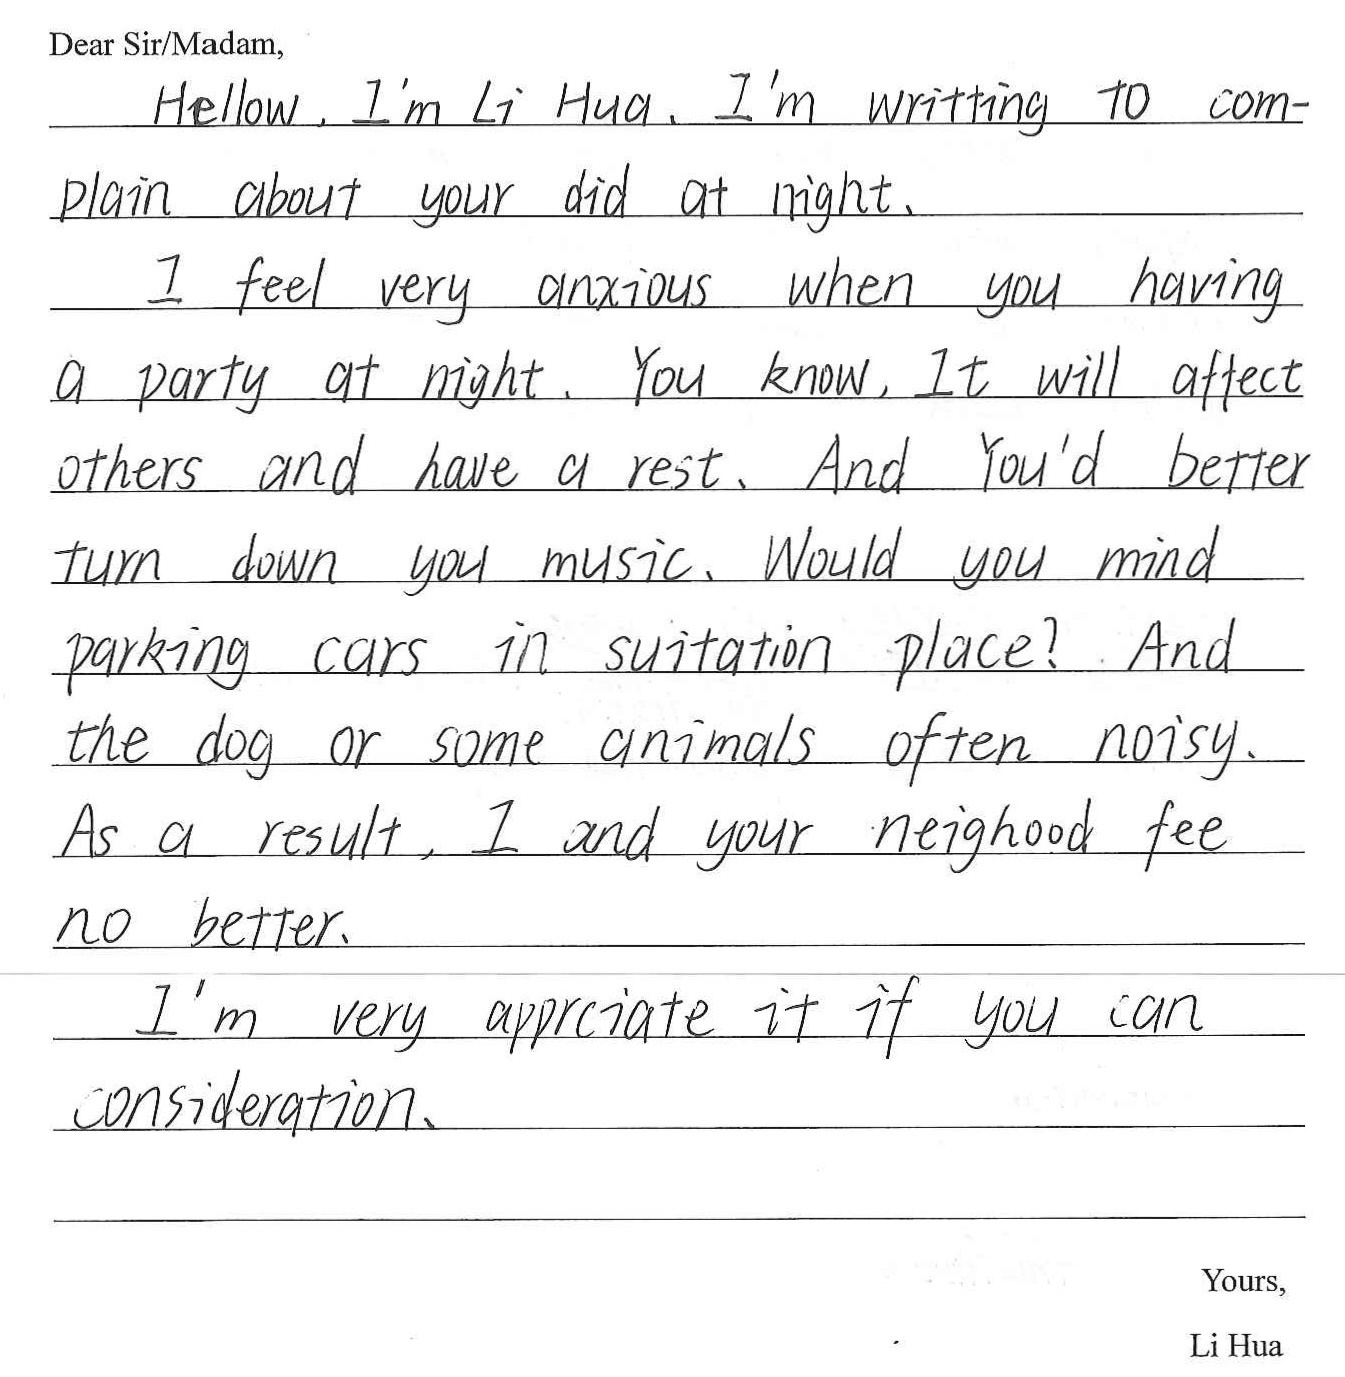 Dear Sir/Madam,
Hellow, I'm Li Hua. I'm writting to com-
plain about your did at night.
I feel very anxious when you having
a party at night. You know, It will affect
others and have a rest. And You'd better
turn down you music. Would you mind
parking cars in suitation place? And
the dog or some animals often noisy.
As a result, I and your neighood fee
no better.
I'm very apprciate it if you can
consideration.
Yours,
Li Hua